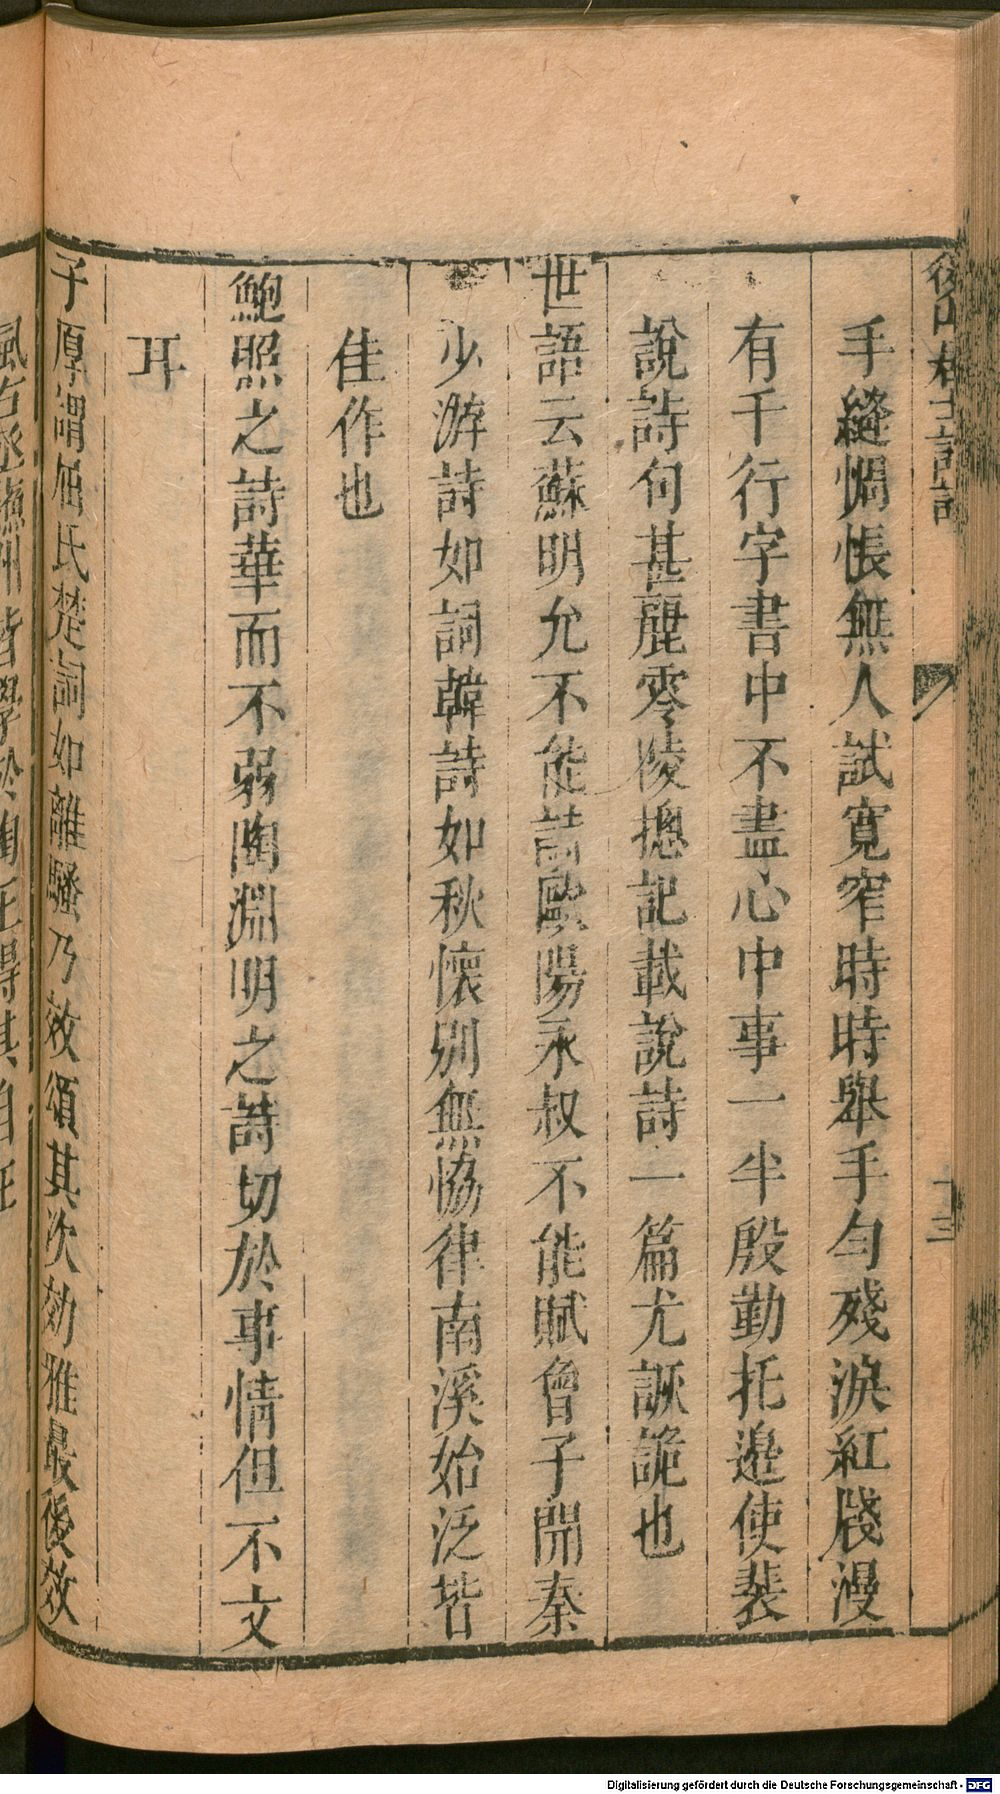 後山居士詩話
十三
手縫惆悵無人試寬窄時時舉手勻殘淚紅牋漫
有千行字書中不盡心中事一半殷勤托邊使裴
說詩句甚麗零陵摠記載說詩一篇尤詼詭也
世語云蘇明允不能詩歐陽永叔不能賦曾子開秦
少游詩如詞韓詩如秋懷別無恊律南溪始泛皆
佳作也
鮑照之詩華而不弱陶淵明之詩切於事情但不文
耳
子厚謂屈氏楚詞如離騷乃效頌其次効雅最後效
風右丞蘇州皆學於陶王得其自在
Digitalisierung gefördert durch die Deutsche Forschungsgemeinschaft - DFG